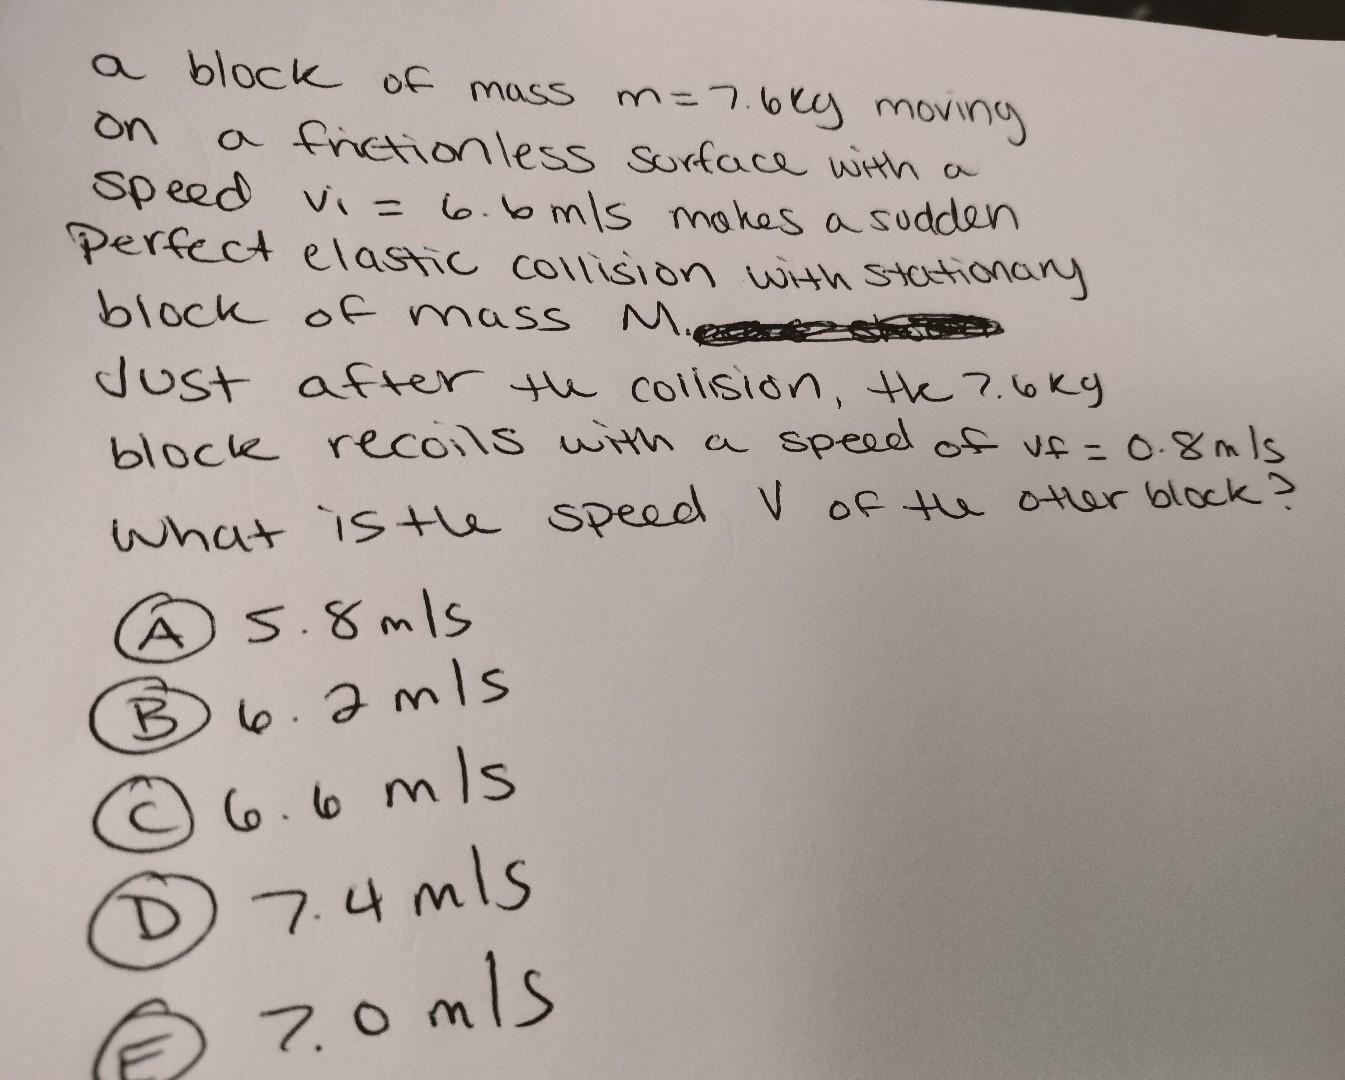 a block of mass m=7.6kg moving
on a frictionless surface with a
speed vi = 6.6 m/s makes a sudden
Perfect elastic collision with stationary
block of mass M.
Just after the collision, the 7.6kg
block recoils with a speed of vf = 0.8 m/s
What is the speed V of the other block?
A 5.8 m/s
B 6.2 m/s
C 6.6 m/s
D 7.4 m/s
E 7.0 m/s